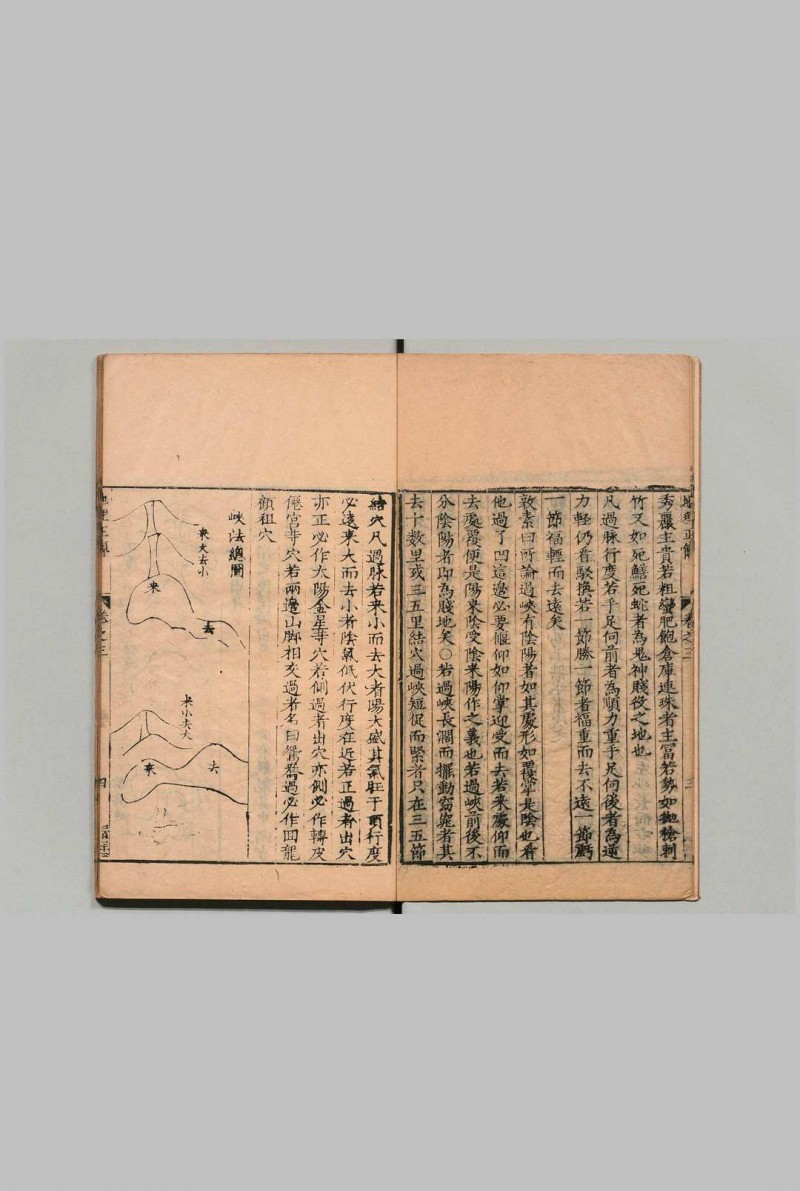 秀麗主貴若粗蠻肥飽倉庫連珠者主富若勢如拋槍刺
竹又如死鱔死蛇者為鬼神賤役之地也
凡過脉行度若手足向前者為順力重手足向後者為逆
力輕仍看駁換若一節勝一節者福重而去不遠一節虧
一節福輕而去遠矣
敦素曰所論過峽有陰陽者如其處形如覆掌是陰也看
他過了凹這邊必要偃仰如仰掌迎受而去若来處仰而
去處覆便是陽来陰受陰来陽作之義也若過峽前後不
分陰陽者即為賤地矣〇若過峽長濶而擺動窈窕者其
去十数里或三五里結穴過峽短促而緊者只在三五節
卷之三
三
結穴凡過脉若来小而去大者陽大盛其氣旺于頭行度
必遠来大而去小者陰氣低伏行度在近若正過者出穴
亦正必作太陽金星等穴若側過者出穴亦側必作轉皮
僊宮等穴若兩邊山脚相交過者名曰鴛鴦過必作囬龍
顧祖穴
峽法總圖
来大去小
来
去
来小去大
来
去
地理正傳
卷之三
四